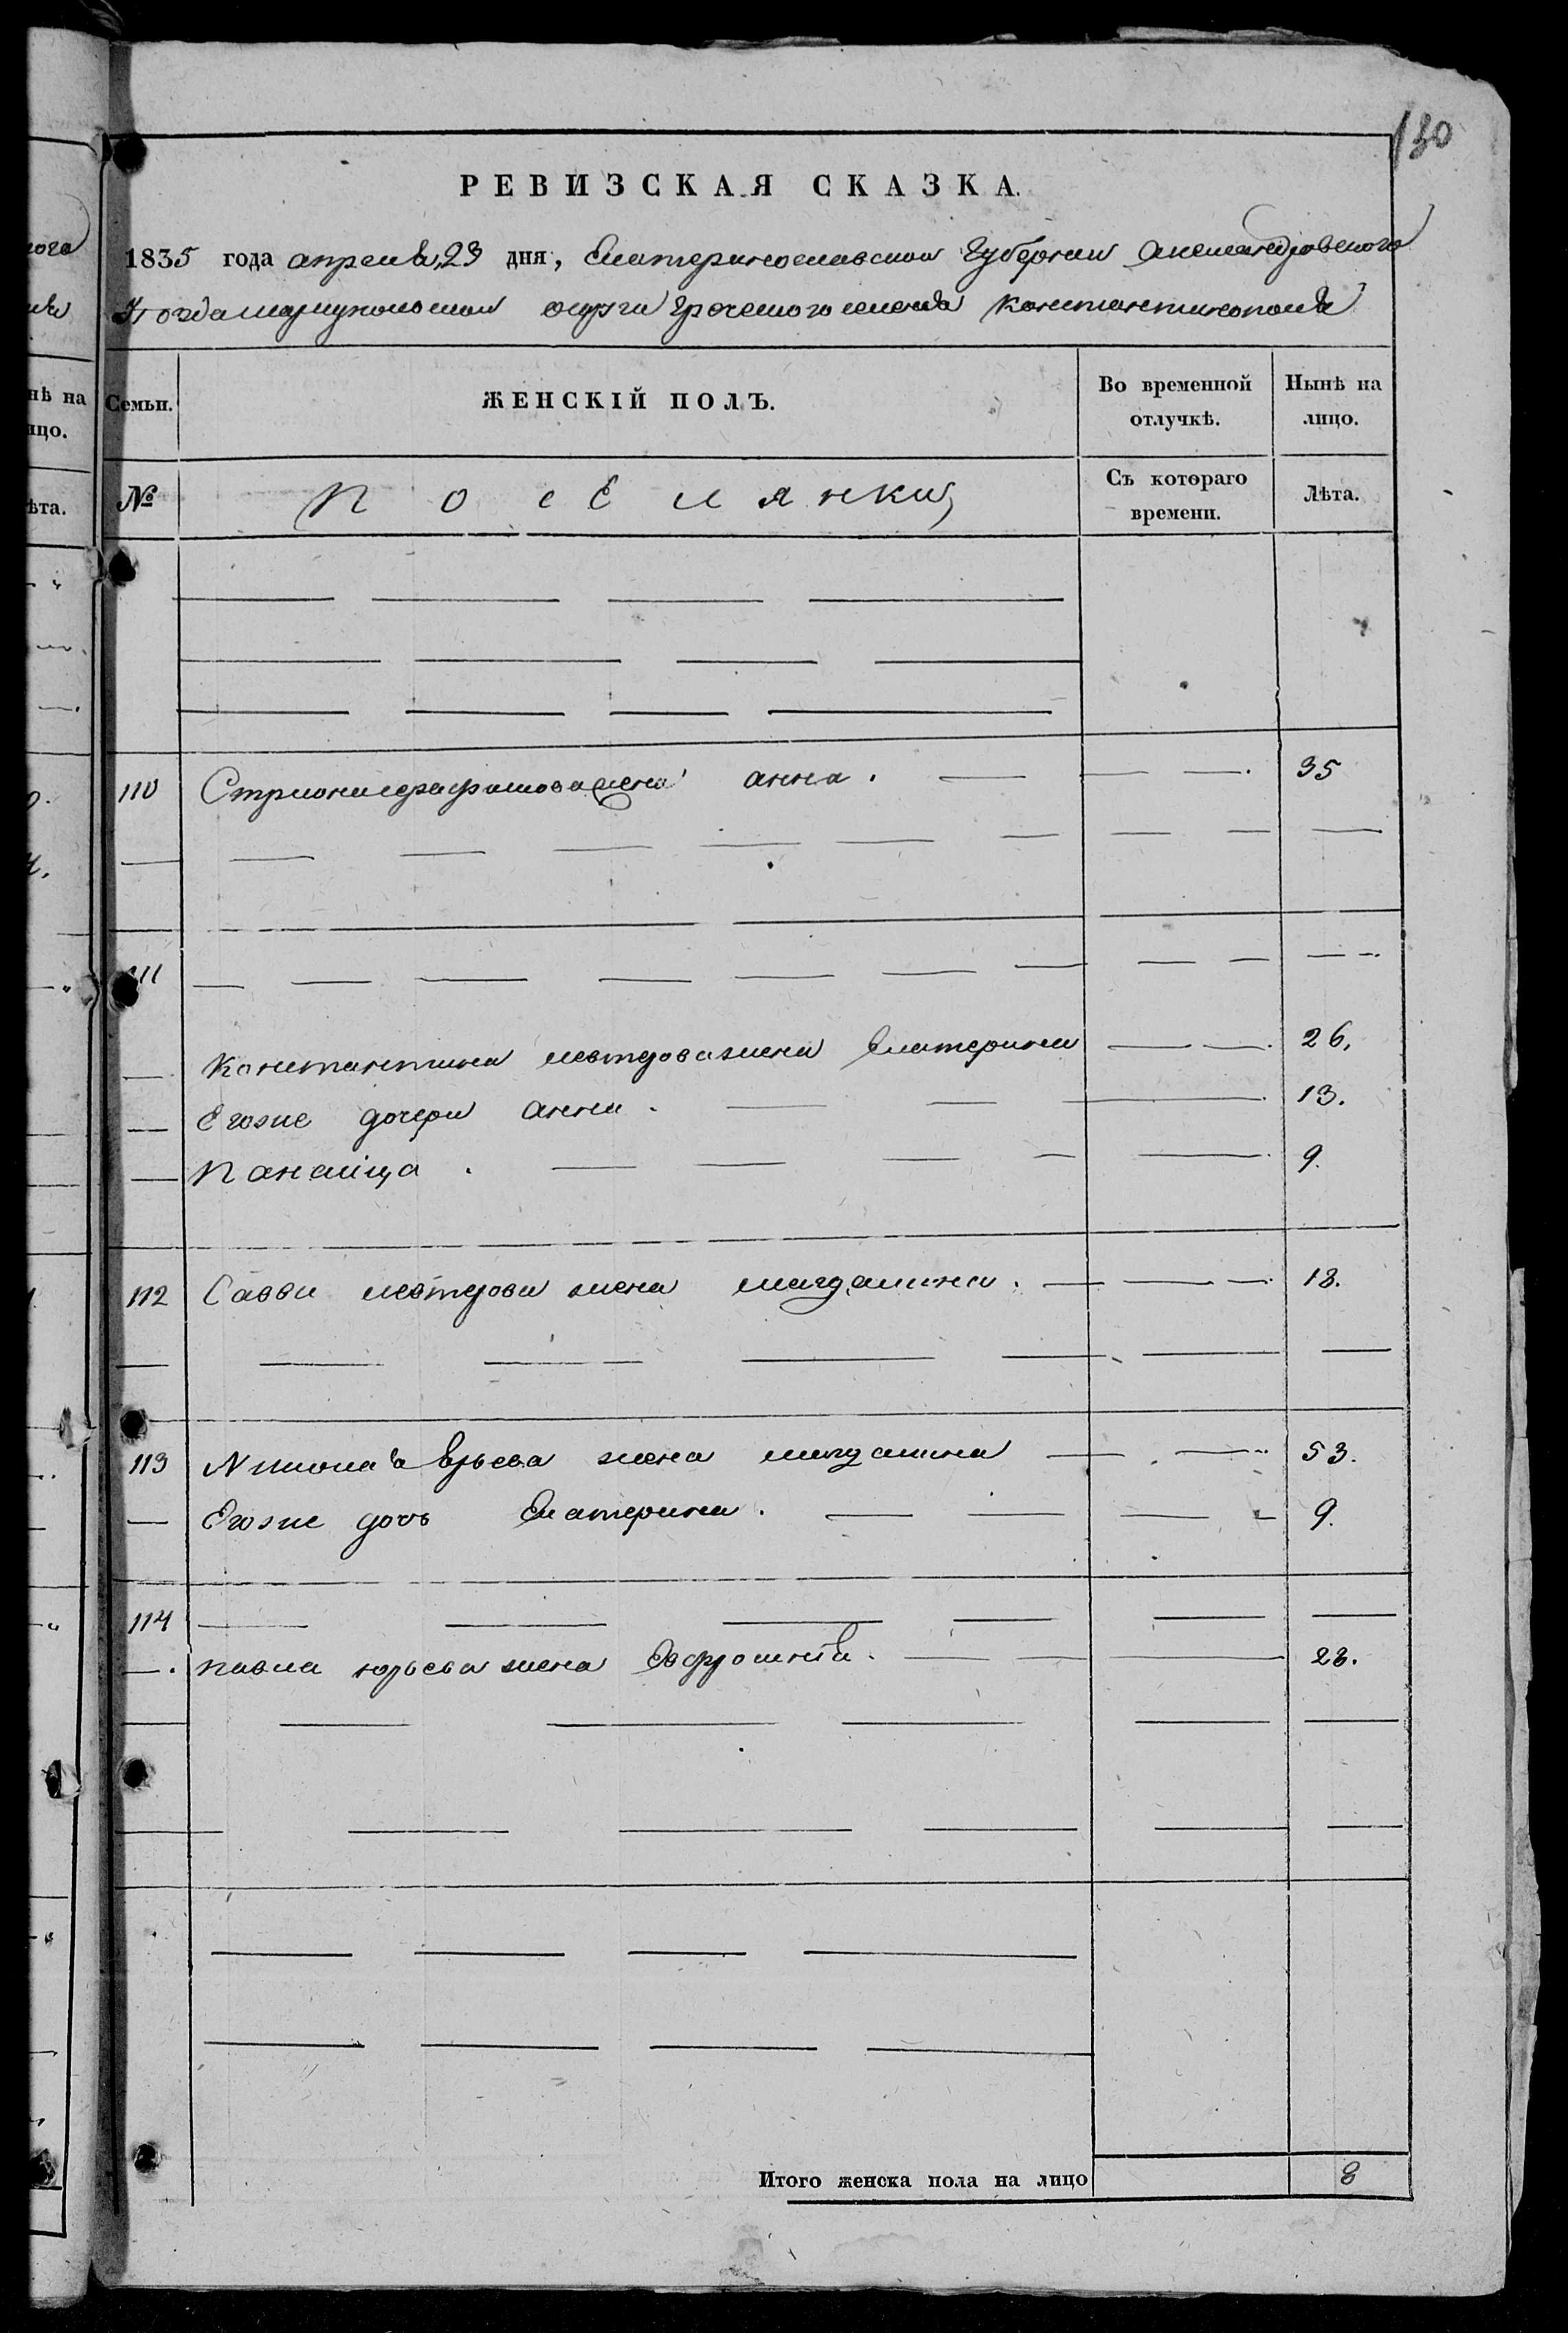 130
РЕВИЗСКАЯ СКАЗКА.
1835 года апреля 23 дня, Екатеринославской Губернии Александровского
Уезда мариупольской округи Греческого селения Константинополя
Семьи. ЖЕНСКІЙ ПОЛЪ. Во временной отлучкѣ. Нынѣ на лицо.
№ Поселянки Съ котораго времени. Лѣта.
110 жена анна. 35
111
Константина жена Екатерина 26.
Егоже дочери анна. 13.
Панаица. 9.
112 Савви жена магдалина. 18.
113 Николая Юрьева жена магдалина 53.
Егоже дочь Екатерина. 9.
114
павла юрьева жена Евфросинія. 23.
Итого женска пола на лицо 8